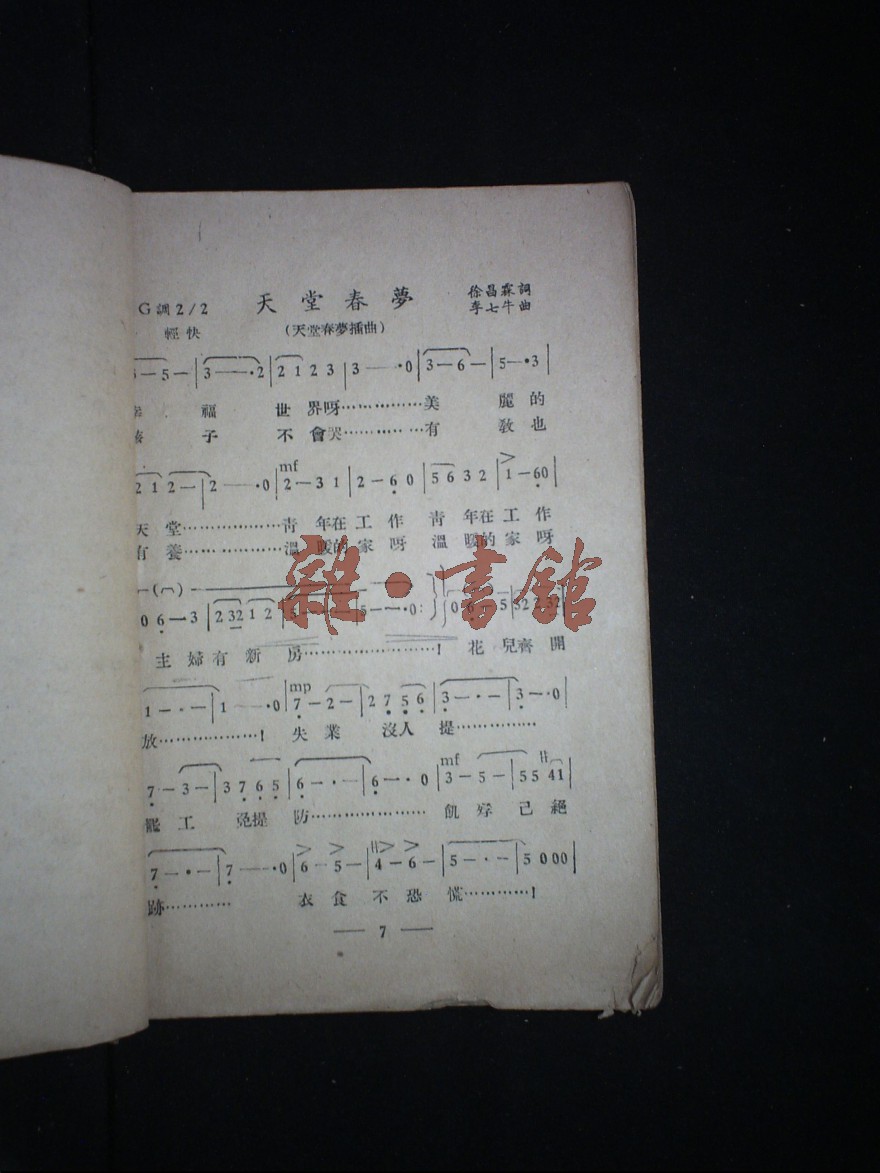 天堂春夢
G調 2/2
徐昌霖詞
李七牛曲
輕快
(天堂春夢插曲)
5—|3——·2|2 1 2 3|3——·0|3—6—|5—·3|
福 世界呀…………美 麗的
子 不會哭…………有 敎也
mf
2 1 2—|2——·0|2—3 1|2—6 0|5 6 3 2|1—6 0|
天堂………………靑 年在工作 靑 年在工作
有養………………溫 暖的家呀 溫 暖的家呀
雜·書館
0 6—3|2 32 1 2|5
主婦有新房…………………! 花兒齊開
mp
1—·—|1——·0|7—2—|2 7 5 6|3—·—|3—·0|
放………………! 失業 沒人提………………
mf
7—3—|3 7 6 5|6—·—|6—·0|3—5—|5 5 #4 1|
罷工 免提防………………… 飢殍己絕
7—·—|7——·0|6—5—|#4—6—|5—·—|5 0 0 0|
跡………… 衣食不恐慌…………!
— 7 —